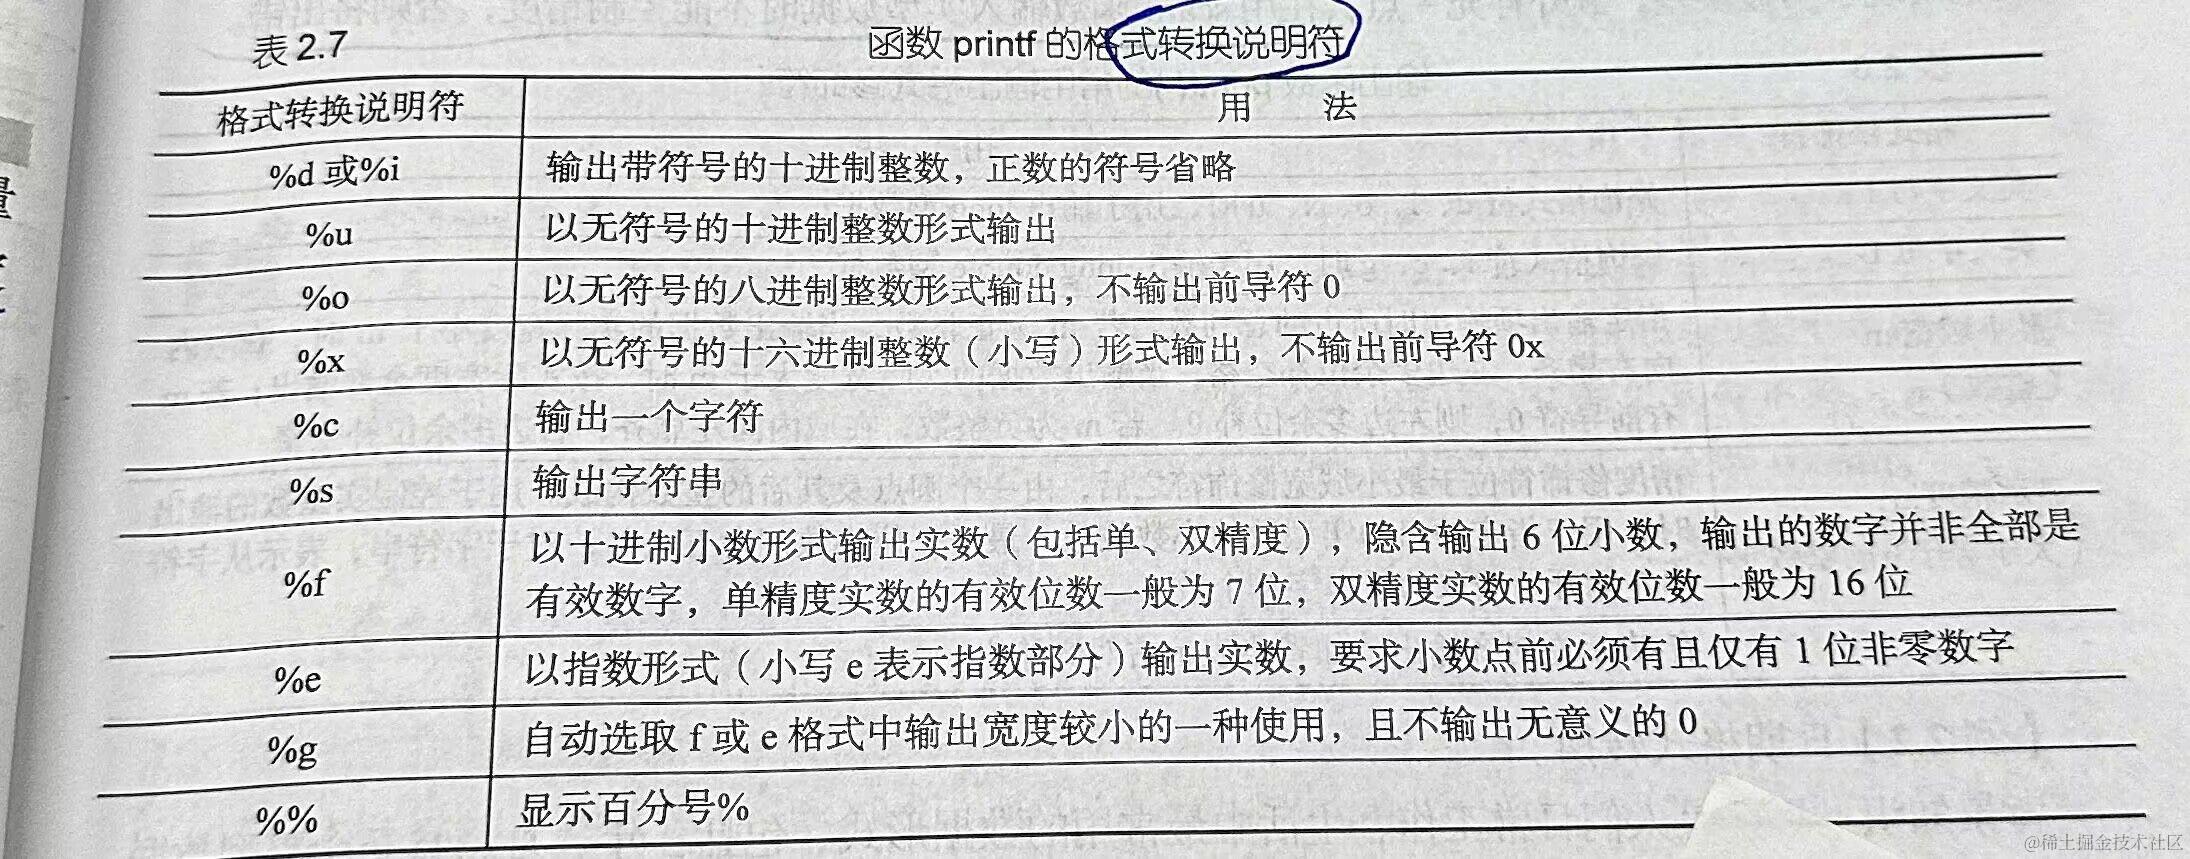 表 2.7
函数 printf 的格式转换说明符
格式转换说明符
用 法
%d 或%i
输出带符号的十进制整数，正数的符号省略
%u
以无符号的十进制整数形式输出
%o
以无符号的八进制整数形式输出，不输出前导符 0
%x
以无符号的十六进制整数（小写）形式输出，不输出前导符 0x
%c
输出一个字符
%s
输出字符串
%f
以十进制小数形式输出实数（包括单、双精度），隐含输出 6 位小数，输出的数字并非全部是
有效数字，单精度实数的有效位数一般为 7 位，双精度实数的有效位数一般为 16 位
%e
以指数形式（小写 e 表示指数部分）输出实数，要求小数点前必须有且仅有 1 位非零数字
%g
自动选取 f 或 e 格式中输出宽度较小的一种使用，且不输出无意义的 0
%%
显示百分号%
量
@稀土掘金技术社区